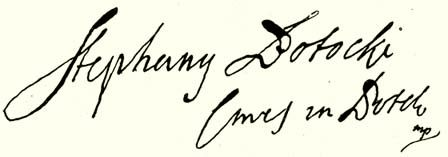 Stephany Potocki
Comes in Potok
mp